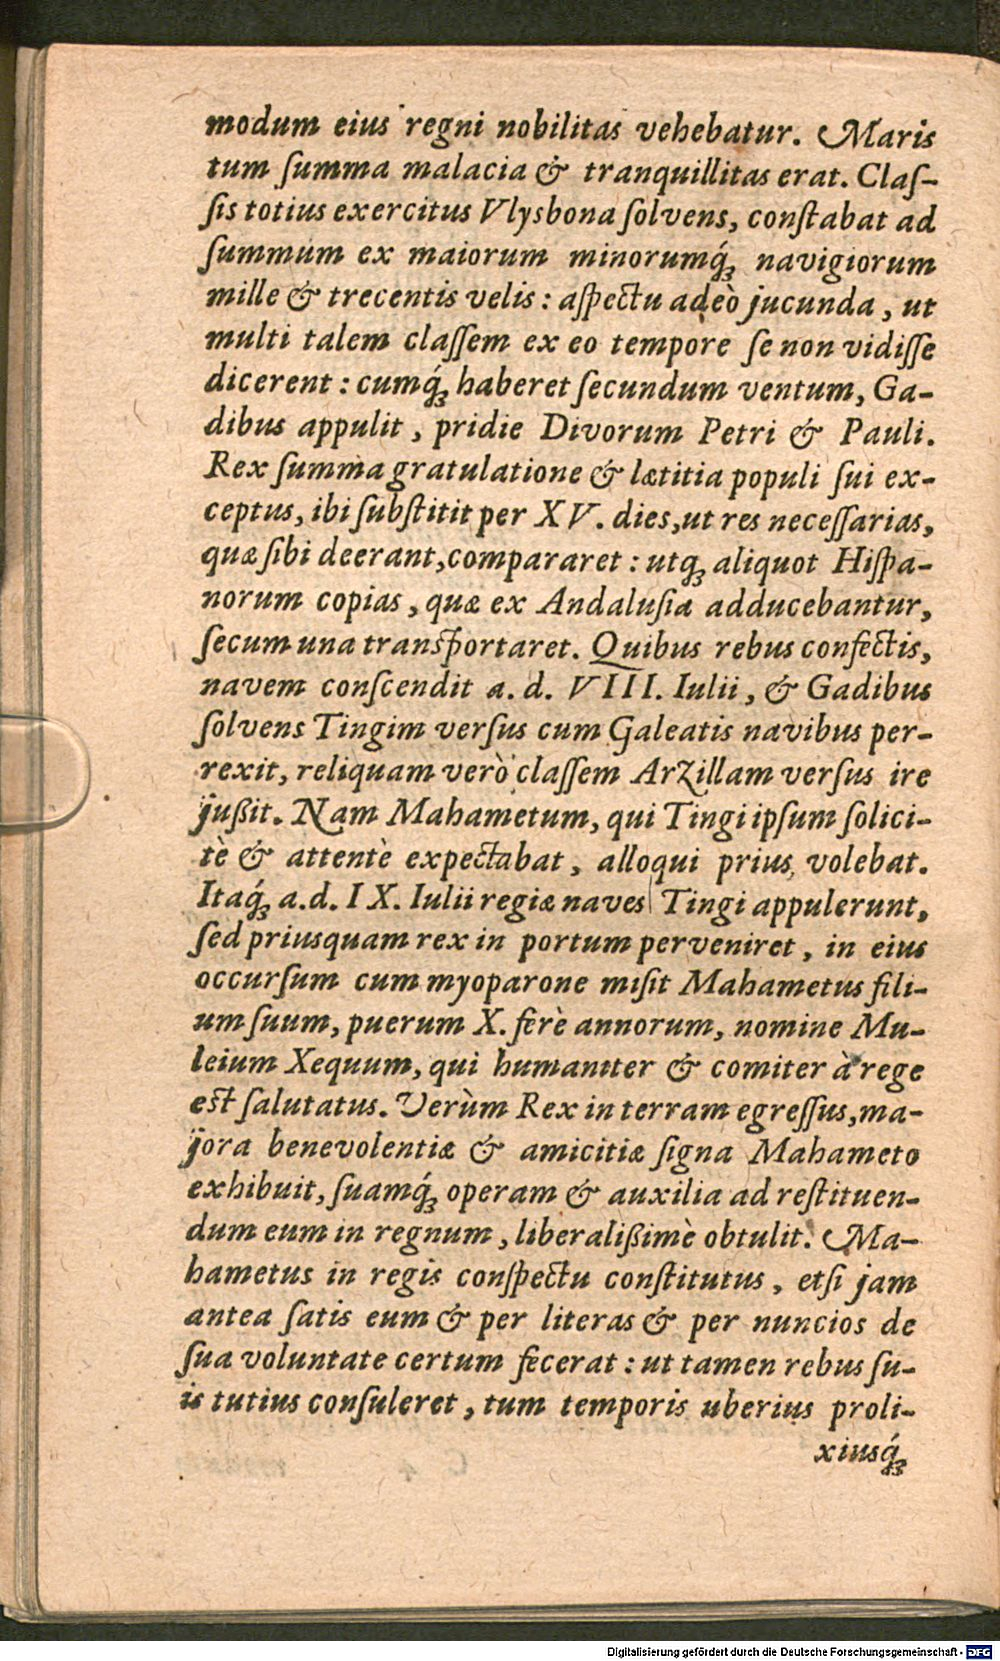 modum eius regni nobilitas vehebatur. Maris
tum ſumma malacia & tranquillitas erat. Claſ-
ſis totius exercitus Vlysbona ſolvens, conſtabat ad
ſummum ex maiorum minorumq́ꝫ navigiorum
mille & trecentis velis : aſpectu adeò jucunda, ut
multi talem claſſem ex eo tempore ſe non vidiſſe
dicerent : cumq́ꝫ haberet ſecundum ventum, Ga-
dibus appulit, pridie Divorum Petri & Pauli.
Rex ſumma gratulatione & lætitia populi ſui ex-
ceptus, ibi ſubſtitit per XV. dies, ut res neceſſarias,
quæ ſibi deerant, compararet : utqꝫ aliquot Hiſpa-
norum copias, quæ ex Andaluſia adducebantur,
ſecum una tranſportaret. Quibus rebus confectis,
navem conſcendit a. d. VIII. Iulii, & Gadibus
ſolvens Tingim verſus cum Galeatis navibus per-
rexit, reliquam verò claſſem Arzillam verſus ire
jußit. Nam Mahametum, qui Tingi ipſum ſolici-
tè & attentè expectabat, alloqui prius volebat.
Itaq́ꝫ a.d. IX. Iulii regiæ naves Tingi appulerunt,
ſed priusquam rex in portum perveniret, in eius
occurſum cum myoparone miſit Mahametus fili-
um ſuum, puerum X. ferè annorum, nomine Mu-
leium Xequum, qui humaniter & comiter à rege
eſt ſalutatus. Verùm Rex in terram egreſſus, ma-
jora benevolentiæ & amicitiæ ſigna Mahameto
exhibuit, ſuamq́ꝫ operam & auxilia ad reſtituen-
dum eum in regnum, liberalißimè obtulit. Ma-
hametus in regis conſpectu conſtitutus, etſi jam
antea ſatis eum & per literas & per nuncios de
ſua voluntate certum fecerat : ut tamen rebus ſu-
is tutius conſuleret, tum temporis uberius proli-
xiusq́ꝫ
Digitalisierung gefördert durch die Deutsche Forschungsgemeinschaft - DFG